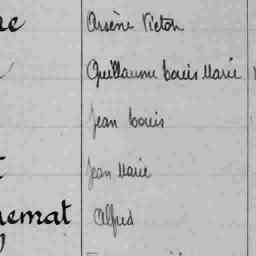 ne Arsène Victor
Guillaume Louis Marie
Jean Louis
Jean Marie
nemat Alfred